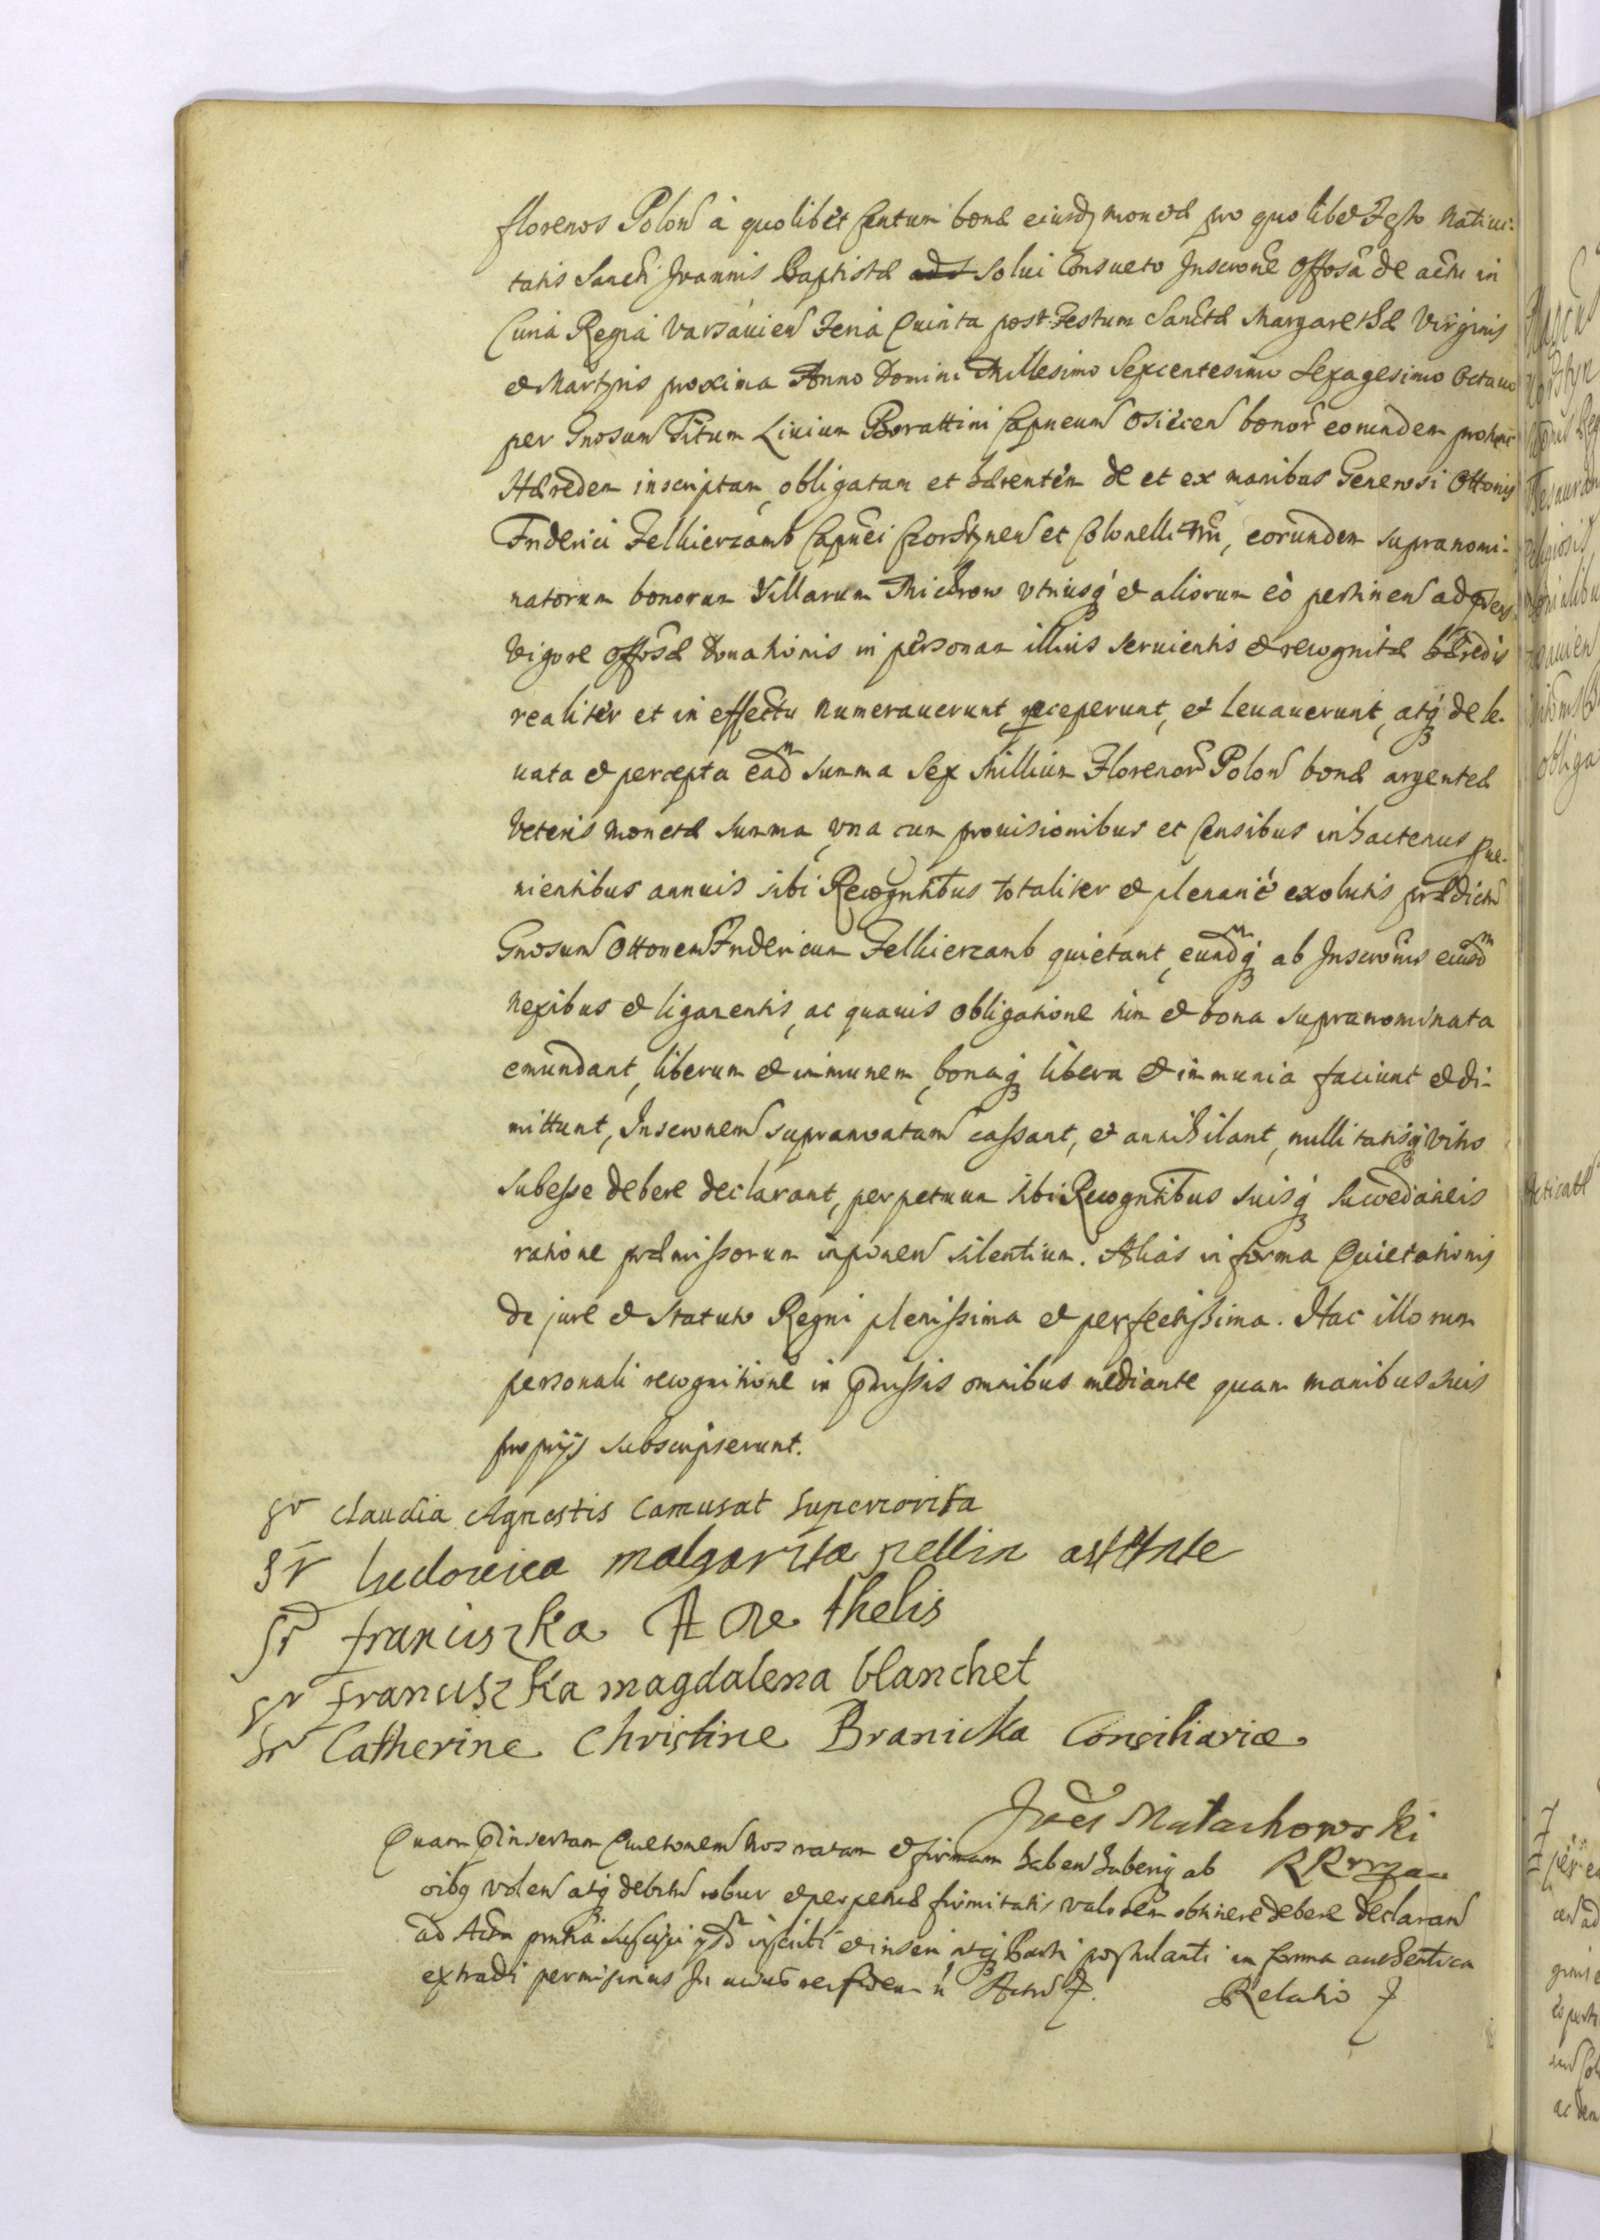 florenos Polon à quolibet Centum bonæ eiusdq monetæ pro quolibet Festo Natiui-
tatis Sancti Joannis Baptistæ solui Consueto Inscrone Offosa de actu in
Curia Regia Varsauien Feria Quinta post Festum Sanctæ Margarethæ Virginis
et Martyris proxima Anno Domini Millesimo Sexcentesimo Sexagesimo Octauo
per Gnosum Titum Liuium Borattini Capneum Osiecen bonor eorundem
Hæredem inscriptam, obligatam et hærentem de et ex manibus Generosi Ottonis
Friderici Felkierzamb Capnei Czorstynen et Colonelli, eorundem supranomi-
natorum bonorum Villarum Michrow vtriusq et aliorum eò pertinen
Vigore Offosæ Donationis in personam illius seruientis et recognitæ hæredis
realiter et in effectu numerauerunt, perceperunt, et leuauerunt, atq de le-
uata et percepta ead summa Sex Millium Florenor Polon bonæ argenteæ
Veteris monetæ summa, vna cum prouisionibus et Censibus in hactenus pue-
nientibus annuis sibi Recogntibus totaliter et plenariè exolutis prædictu
Gnosum Ottonem Fridericum Felkierzamb quietant, eundq ab Inscronis eiusd
nexibus et ligamentis, ac quauis obligatione him et bona supranominata
emundant, liberum et immunem, bonaq libera et immunia faciunt et di-
mittunt, Inscronem supranoatam cassant, et annihilant, nullitatisq vitio
subesse debere declarant, perpetuum sibi Recogntibus suisq Succedaneis
ratione præmissorum imponen silentium. Aliàs in forma Quietationis
de jure et statuto Regni plenissima et perfectissima. Hac illorum
personali recognitione in pmissis omnibus mediante quam manibus suis
proprijs subscripserunt.
Sr Claudia Agnestis Camusat Superiorita
Sr Ludovica malgarita pellin
Sr franciszka A De thelis
Sr franciszka magdalena blanchet
Sr Catherine Christine Branicka Consiliariæ
Joes Małachowski
Quam pinsertam Quietonem Nos ratam et firmam haben haberiq ab
oibq volen atq debitu robur et perpetuæ firmitatis valorem obtinere debere declaran
ad Acta pntia suscipi inscribi et inseri atq Parti postulanti in forma authentica
extradi permisimus In cuius rei fidem Actu
Relatio